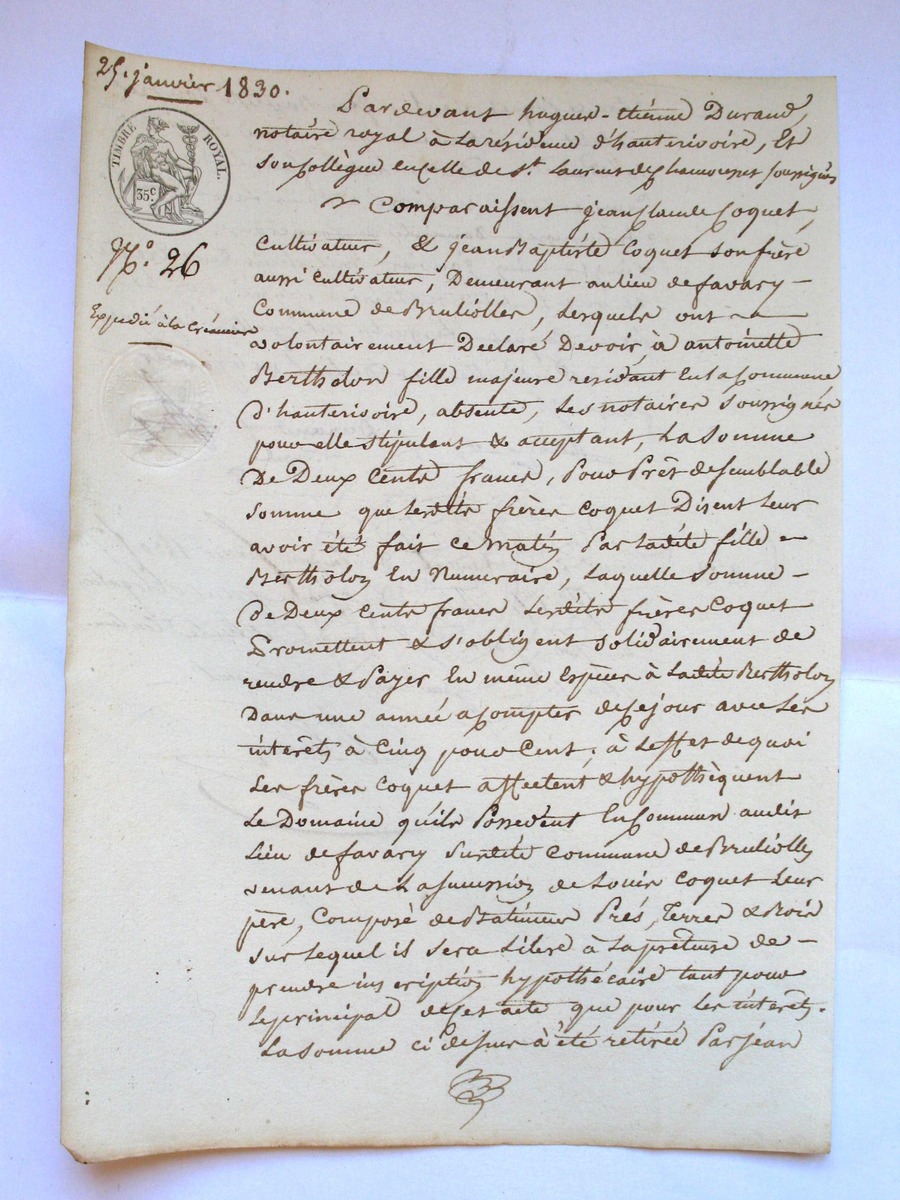 25. janvier 1830.
TIMBRE ROYAL.
35c
No. 26
Expédié à la Créancière
Pardevant hugues-étienne Durand,
notaire royal à la résidence d'hauterivoire, Et
son Collègue en celle de St. Laurent de Chamousset soussignés
Comparaissent jean Claude Coquet,
Cultivateur, & jean Baptiste Coquet son frère
aussi Cultivateur, Demeurant au lieu de favary
Commune de Brulioles, Lesquels ont
volontairement Declaré Devoir, à antoinette
Bertholon fille majeure residant En la Commune
d'hauterivoire, absente, Les notaires soussignés
pour elle stipulant & acceptant, La Somme
De Deux Cents francs, Pour Prêt de semblable
somme que lesdits frères Coquet Disent Leur
avoir été fait ce matin Par ladite fille
Bertholon En Numéraire, Laquelle Somme
de Deux Cents francs Lesdits frères Coquet
Promettent & s'obligent solidairement de
rendre & Payer En même Espèces à Ladite Bertholon
Dans une année à Compter de Ce jour avec Les
intérêts à Cinq pour Cent; à L'effet de quoi
Les frères Coquet affectent & hypothèquent
Le Domaine qu'ils Possèdent En Commun audit
Lieu de favary susdite Commune de Brulioles
venant de La succession de Louis Coquet Leur
père, Composé de Batimens Prés, Terres & Bois
sur Lequel il sera Libre à La prêteuse de
prendre inscription hypothécaire tant pour
Le principal de Cet acte que pour Les intérêts.
La Somme ci dessus à été retirée Par jean